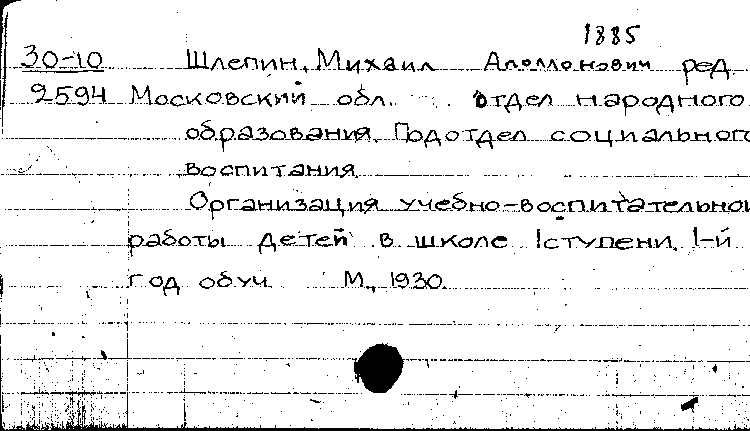 1885
30-10 Шлепин, Михаил Аполлонович ред.
2594 Московский обл. отдел народного
образования. Подотдел социального
воспитания
Организация учебно-воспитательной
работы детей в школе I ступени. 1-й
год обуч. М., 1930.